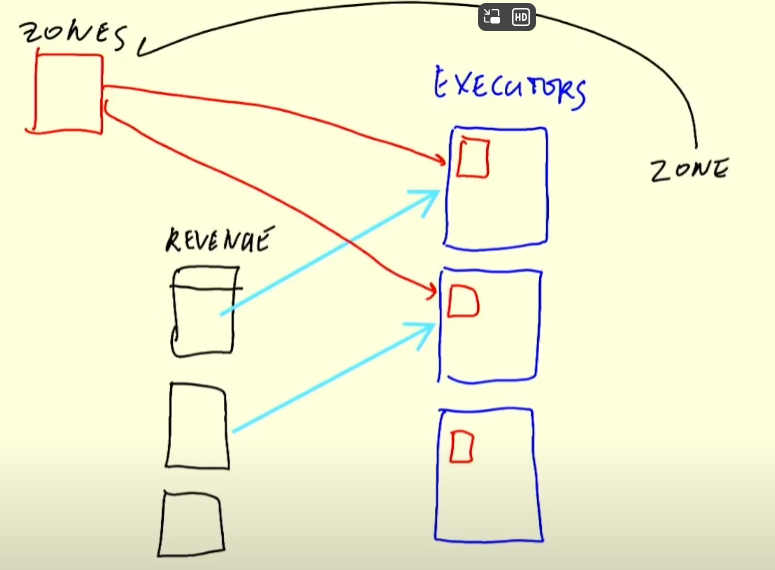 ZONES
HD
EXECUTORS
ZONE
REVENUE